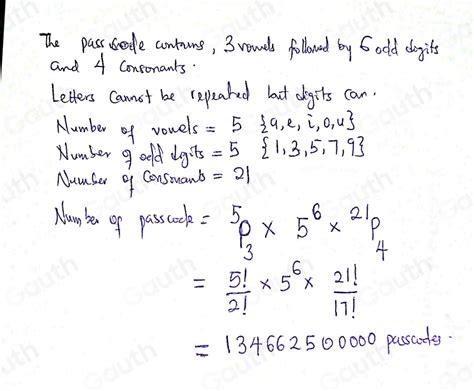 The passcode contains, 3 vowels followed by 6 odd digits
and 4 consonants.
Letters cannot be repeated but digits can.
Number of vowels = 5 {a, e, i, o, u}
Number of odd digits = 5 {1, 3, 5, 7, 9}
Number of Consonants = 21
Number of passcode = ⁵P₃ × 5⁶ × ²¹P₄
= 5!/2! × 5⁶ × 21!/17!
= 134662500000 passcodes.